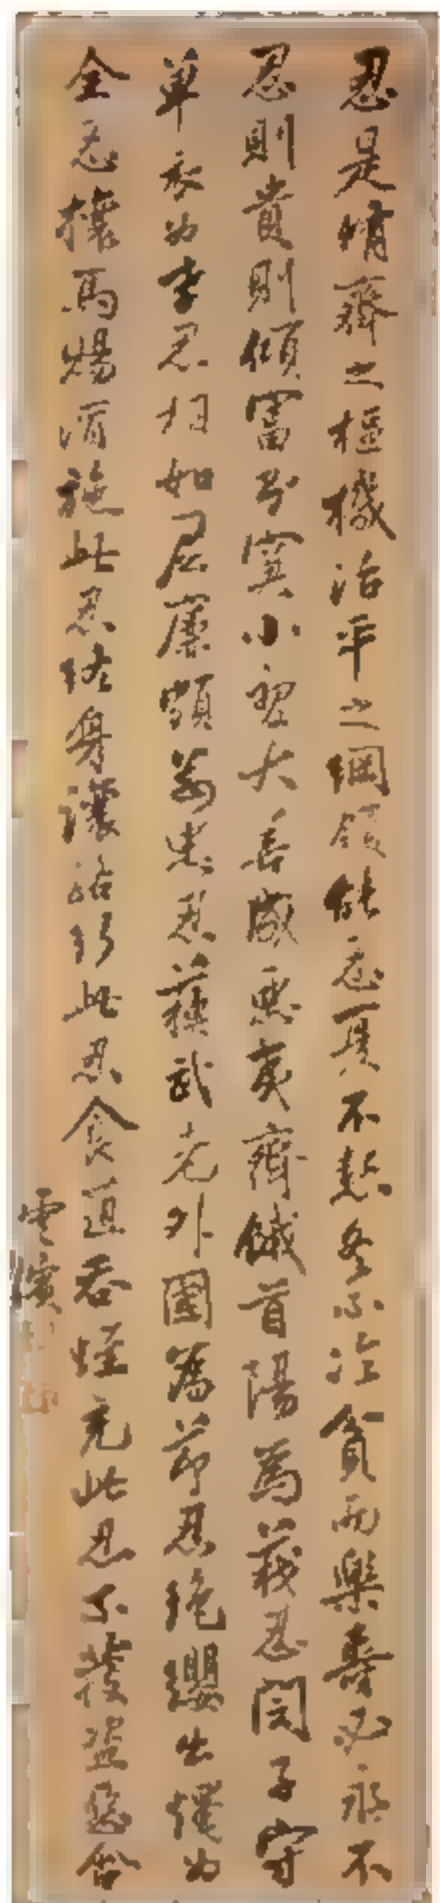 忍是情齊之樞機治平之綱領能忍夏不熱冬不冷貧而樂壽必永不
忍則貴則傾富則寞小智大善成惡夷齊餓首陽為義忍閔子守
單衣為孝忍相如屈廉頗為忠忍蘇武老外國為節忍絕纓出燭為
全忍攘馬燭須施此忍終身讓路行此忍食道吞蛭充此忍不發盜
雲濱